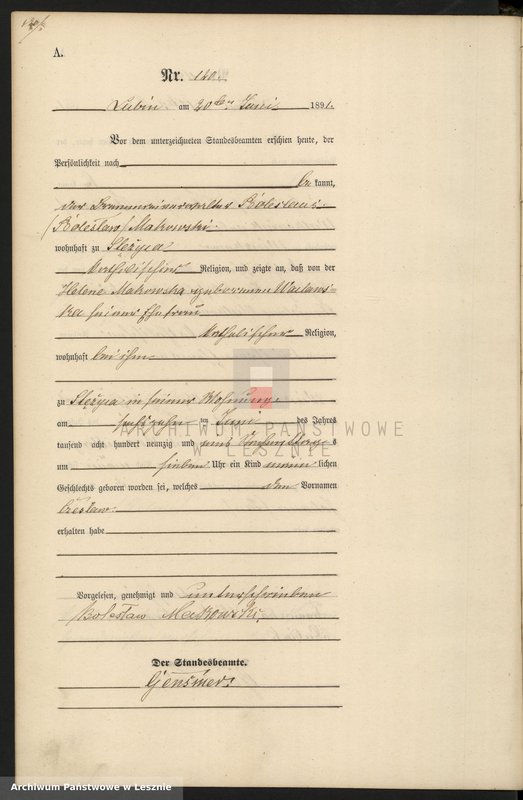 A.
Nr. 140.
Lubin am 20ten Juni 1891.
Vor dem unterzeichneten Standesbeamten erschien heute, der
Persönlichkeit nach
be kannt,
der Brennereiverwalter
(Bolesław) Makowski
wohnhaft zu Stężyca
katholischer Religion, und zeigte an, daß von der
Helene Makowska geborenen
seiner Ehefrau
katholischer Religion,
wohnhaft bei ihm
zu Stężyca in seiner Wohnung
am sechszehnten Juni des Jahres
tausend acht hundert neunzig und eins Vormittags
um sieben Uhr ein Kind männlichen
Geschlechts geboren worden sei, welches den Vornamen
Czesław
erhalten habe
Vorgelesen, genehmigt und unterschrieben
Bolesław Makowski.
Der Standesbeamte.
Gensmer
ARCHIWUM PAŃSTWOWE
W LESZNIE
Archiwum Państwowe w Lesznie